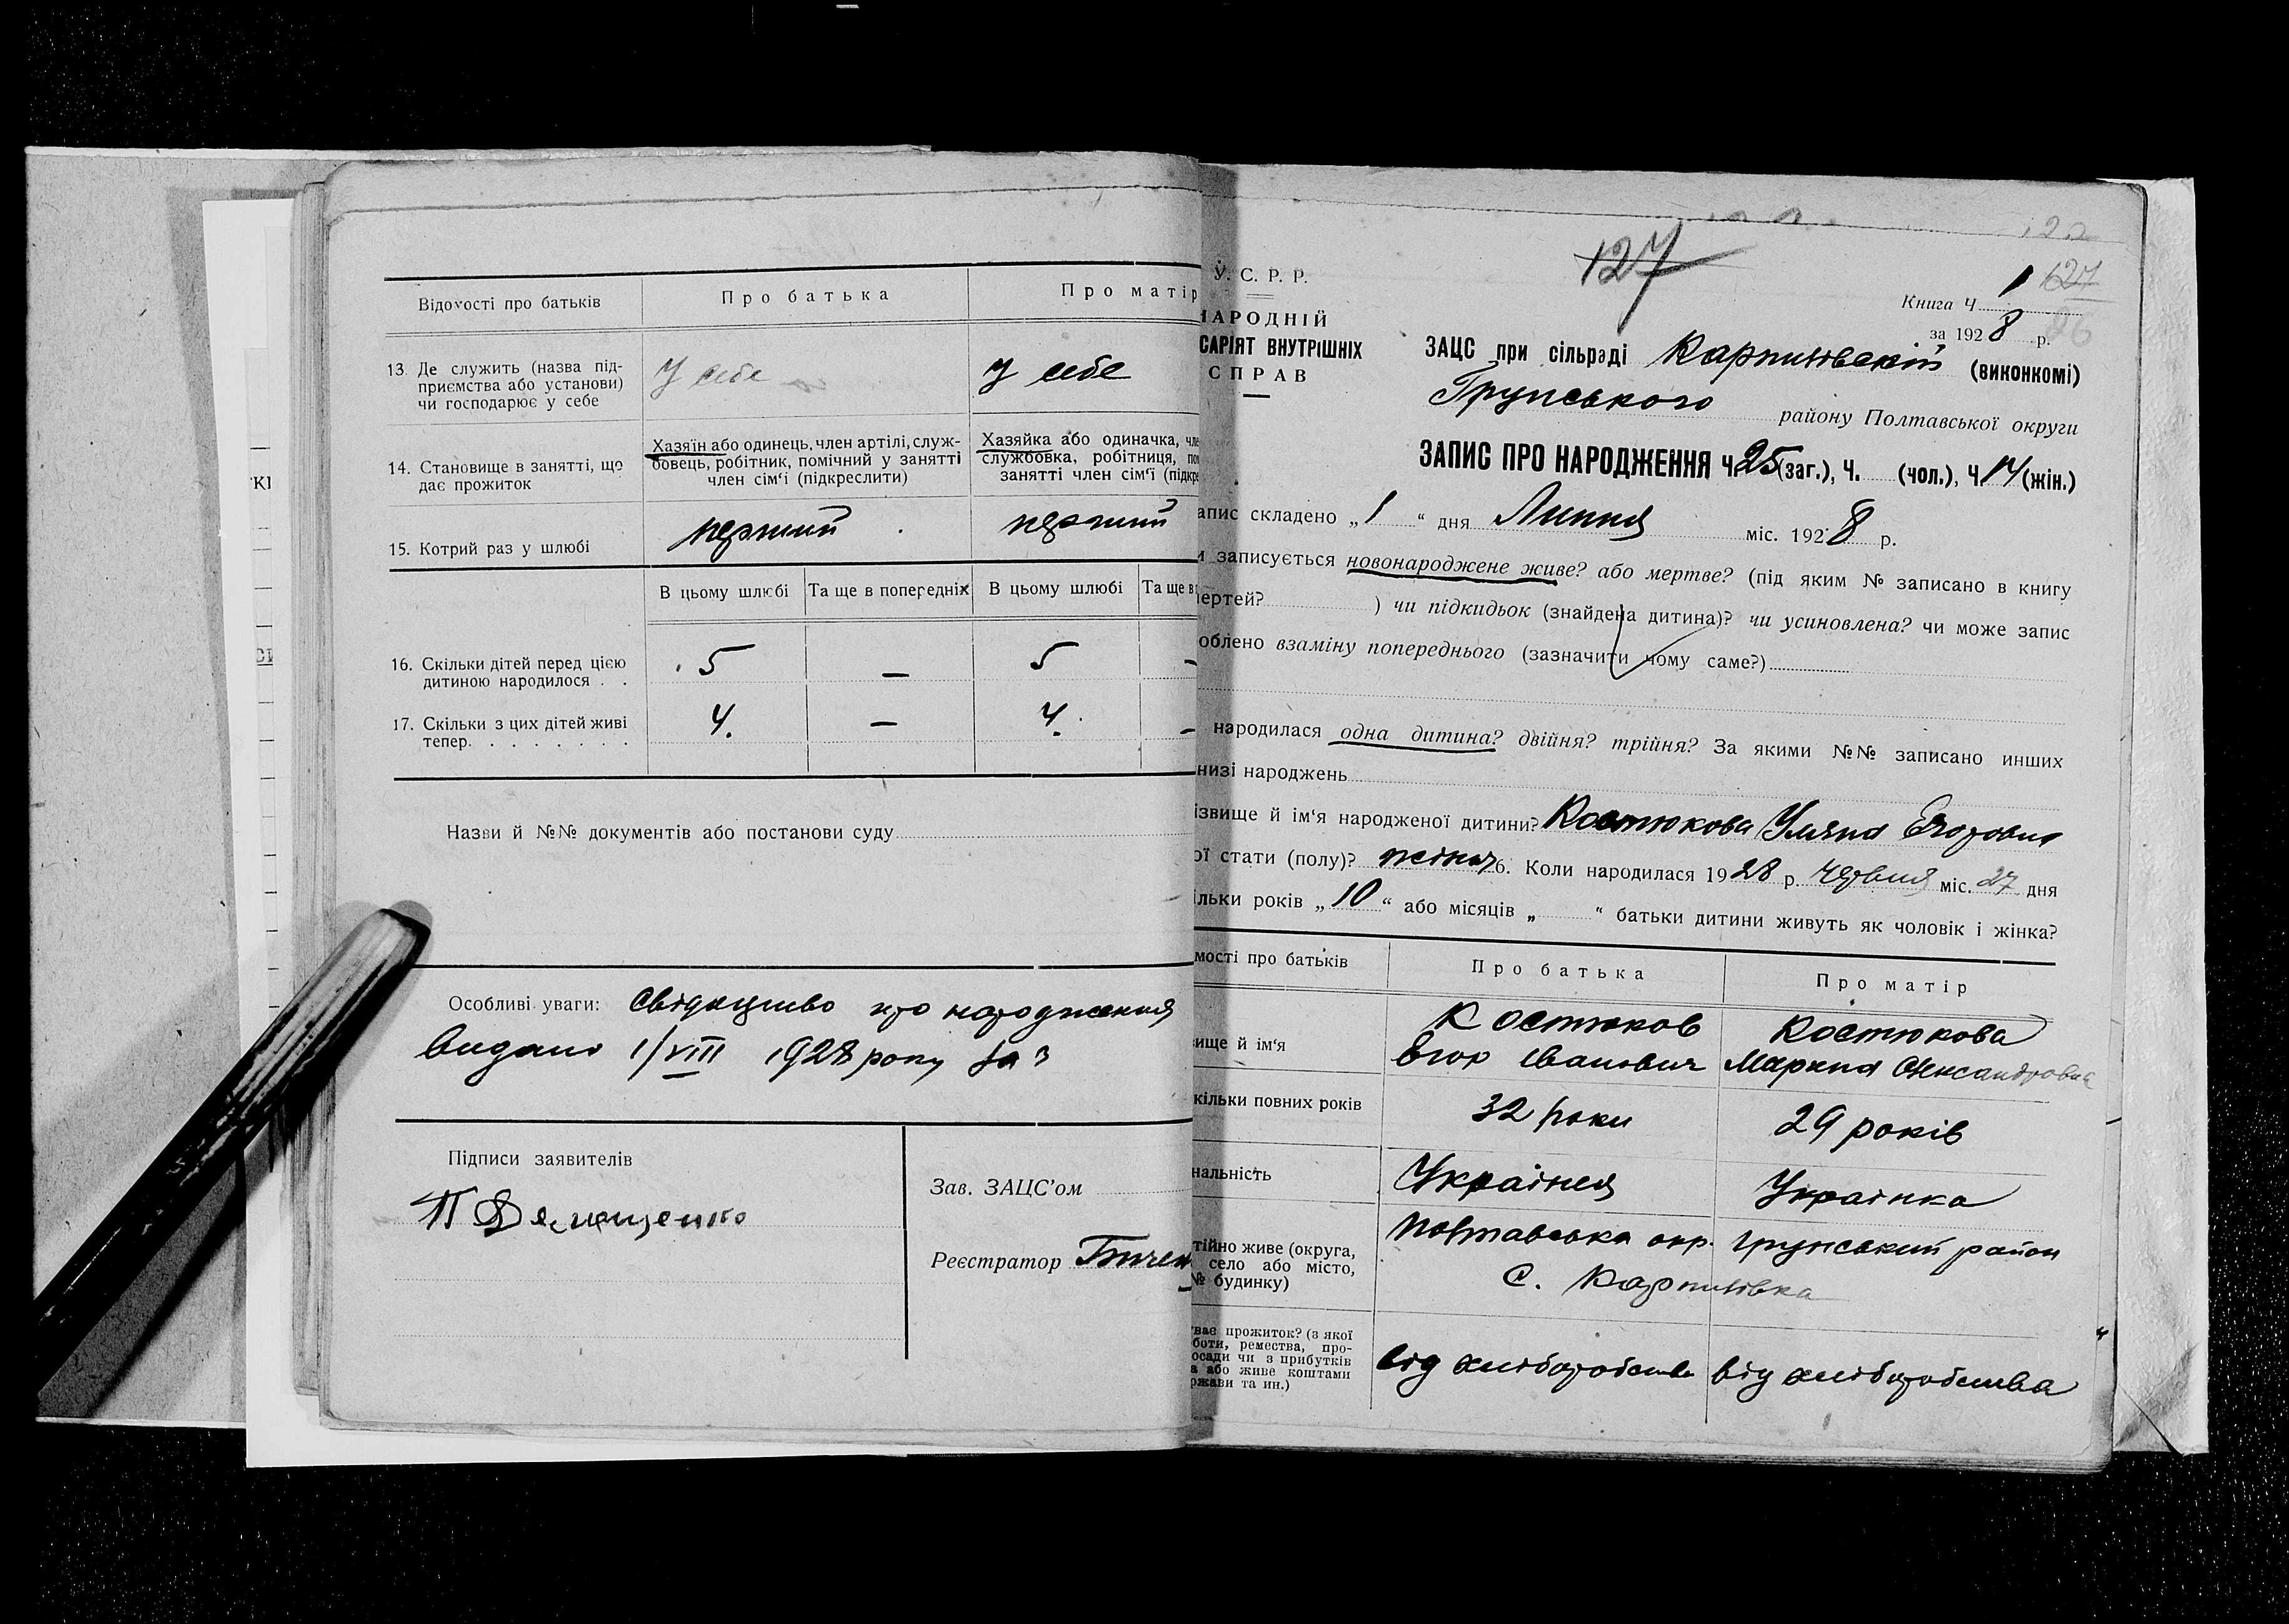 Відомості про батьків
Про батька
Про матір
13. Де служить (назва під-
приємства або установи)
чи господарює у себе
У себе
У себе
14. Становище в занятті, що
дає прожиток
Хазяїн або одинець, член артілі, служ-
бовець, робітник, помічний у занятті
член сім'ї (підкреслити)
Хазяйка або одиначка, чле
службовка, робітниця, по
занятті член сім'ї (підкре
15. Котрий раз у шлюбі
перший
перший
В цьому шлюбі
Та ще в попередніх
В цьому шлюбі
Та ще в
16. Скільки дітей перед цією
дитиною народилося . .
5
—
5
—
17. Скільки з цих дітей живі
тепер. . . . . . . .
4.
—
4.
—
Назви й №№ документів або постанови суду
Особливі уваги: Свідоцтво про народження
видано 1/VIII 1928 року за
Підписи заявителів
Зав. ЗАЦС'ом
Реєстратор
127
У. С. Р. Р.
НАРОДНІЙ
САРІЯТ ВНУТРІШНІХ
СПРАВ
Книга Ч 1
127
за 1928 р.
26
ЗАЦС при сільраді Карпилівській (виконкомі)
Грунського району Полтавської округи
ЗАПИС ПРО НАРОДЖЕННЯ Ч. 25 (заг.), Ч. (чол.), Ч. 14 (жін.)
апис складено „1“ дня Липня міс. 1928 р.
и записується новонароджене живе? або мертве? (під яким № записано в книгу
мертей? ) чи підкидьок (знайдена дитина)? чи усиновлена? чи може запис
облено взаміну попереднього (зазначити чому саме?)
народилася одна дитина? двійня? трійня? За якими №№ записано инших
низі народжень
ізвище й ім'я народженої дитини? Костюкова Уляна Егоровна
ої стати (полу)? жіноч 6. Коли народилася 1928 р. червня міс. 27 дня
ільки років „10“ або місяців „ “ батьки дитини живуть як чоловік і жінка?
мості про батьків
Про батька
Про матір
вище й ім'я
Костюков
Егор Іванович
Костюкова
Марина Олександровна
кільки повних років
32 роки
29 років
нальність
Українец
Українка
тійно живе (округа,
село або місто,
№ будинку)
Полтавська окр. Грунський район
С. Карпилівка
ває прожиток? (з якої
боти, ремества, про-
осади чи з прибутків
а або живе коштами
ржави та ин.)
від хліборобства
від хліборобства